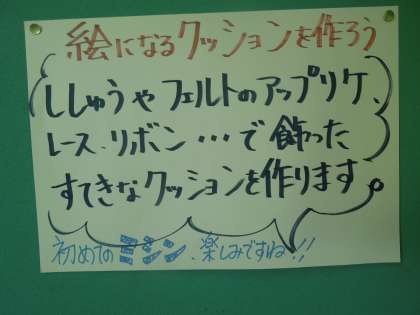 絵になるクッションを作ろう
ししゅうやフェルトのアップリケ、
レース、リボン…で飾った
すてきなクッションを作ります。
初めてのミシン、楽しみですね!!